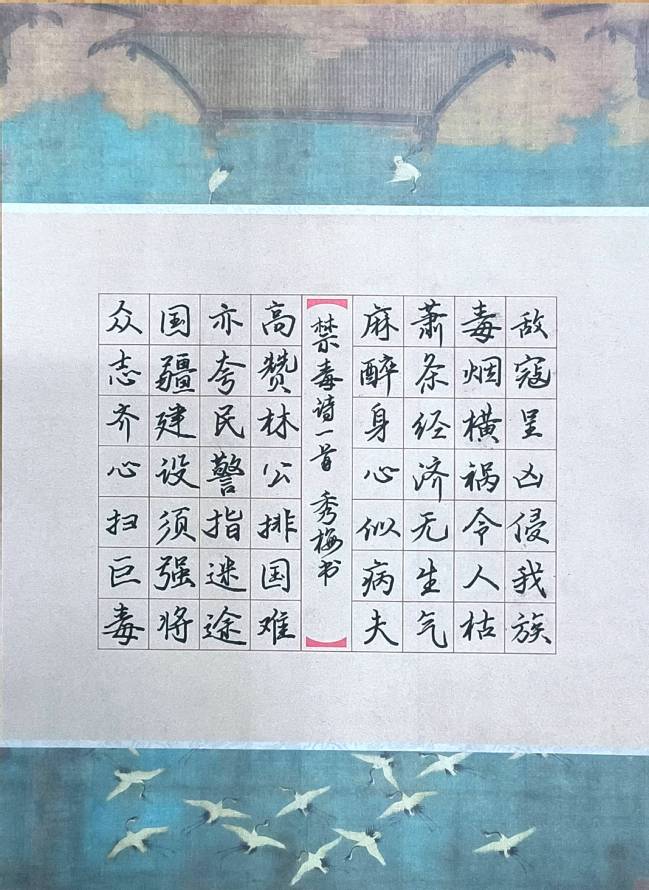 敌寇呈凶侵我族
毒烟横祸令人枯
萧条经济无生气
麻醉身心似病夫
禁毒诗一首 秀梅书
高赞林公排国难
亦夸民警指迷途
国疆建设须强将
众志齐心扫巨毒